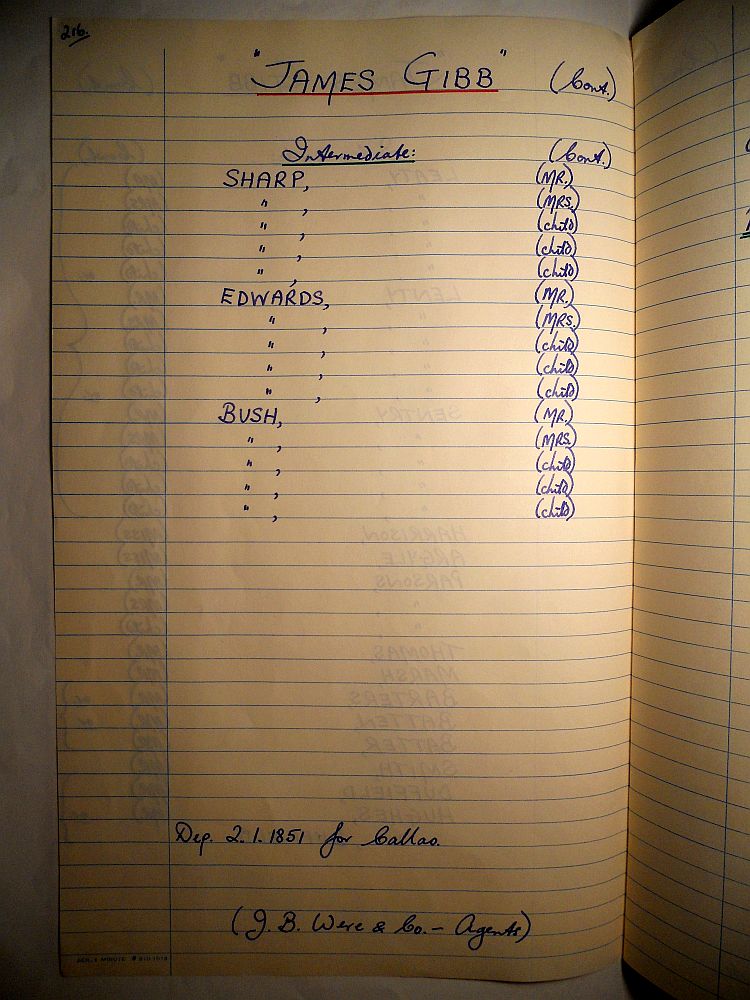 216.
"JAMES GIBB" (Cont.)
Intermediate: (Cont.)
SHARP, (MR.)
" , (MRS.)
" , (child)
" , (child)
" , (child)
EDWARDS, (MR.)
" , (MRS.)
" , (child)
" , (child)
" , (child)
BUSH, (MR.)
" , (MRS.)
" , (child)
" , (child)
" , (child)
Dep. 2.1.1851 for Callao.
(J. B. Were & Co. - Agents)